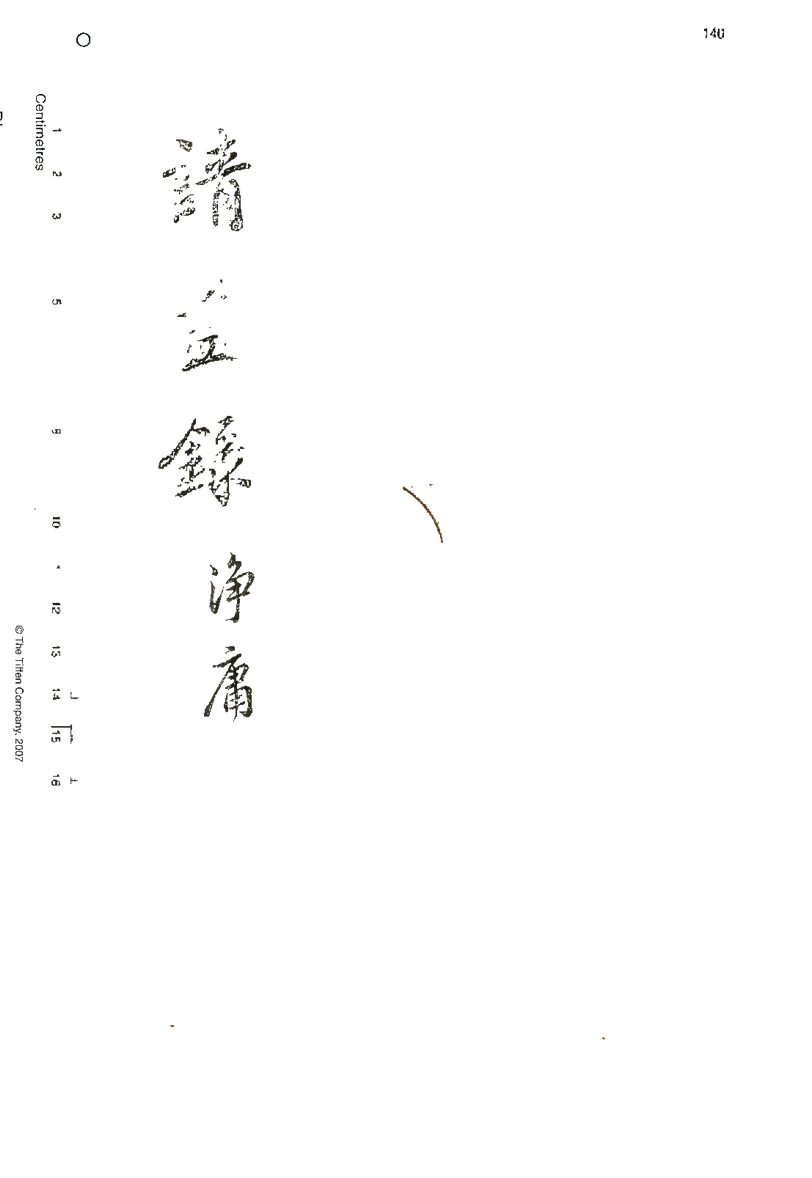 140
請益錄 淨庸
Centimetres
1 2 3 5 10 12 13 14 15 16
© The Tiffen Company, 2007